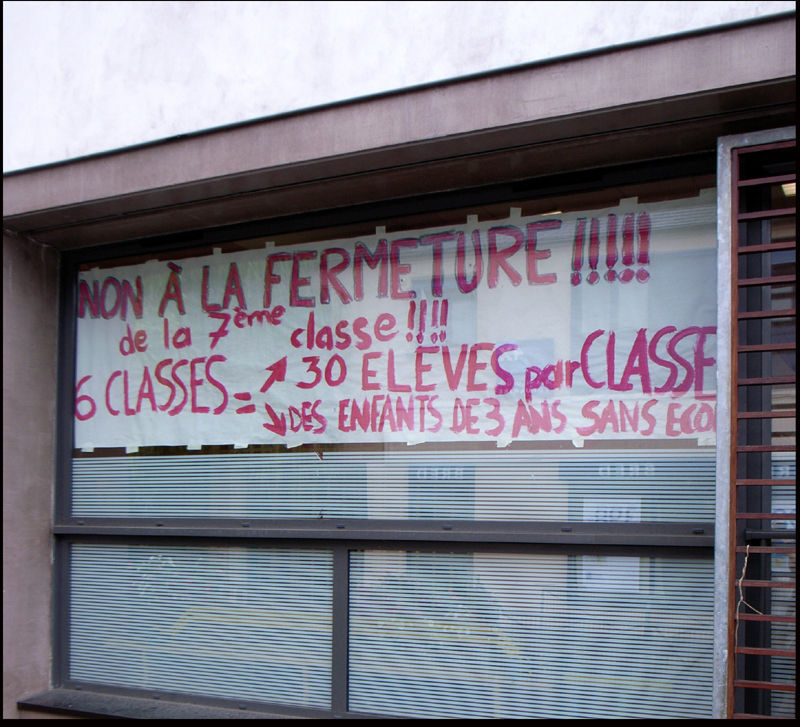 NON À LA FERMETURE !!!!!
de la 7ème classe !!!!
6 CLASSES = ↗ 30 ELÈVES par CLASSE
↘ DES ENFANTS DE 3 ANS SANS ECO